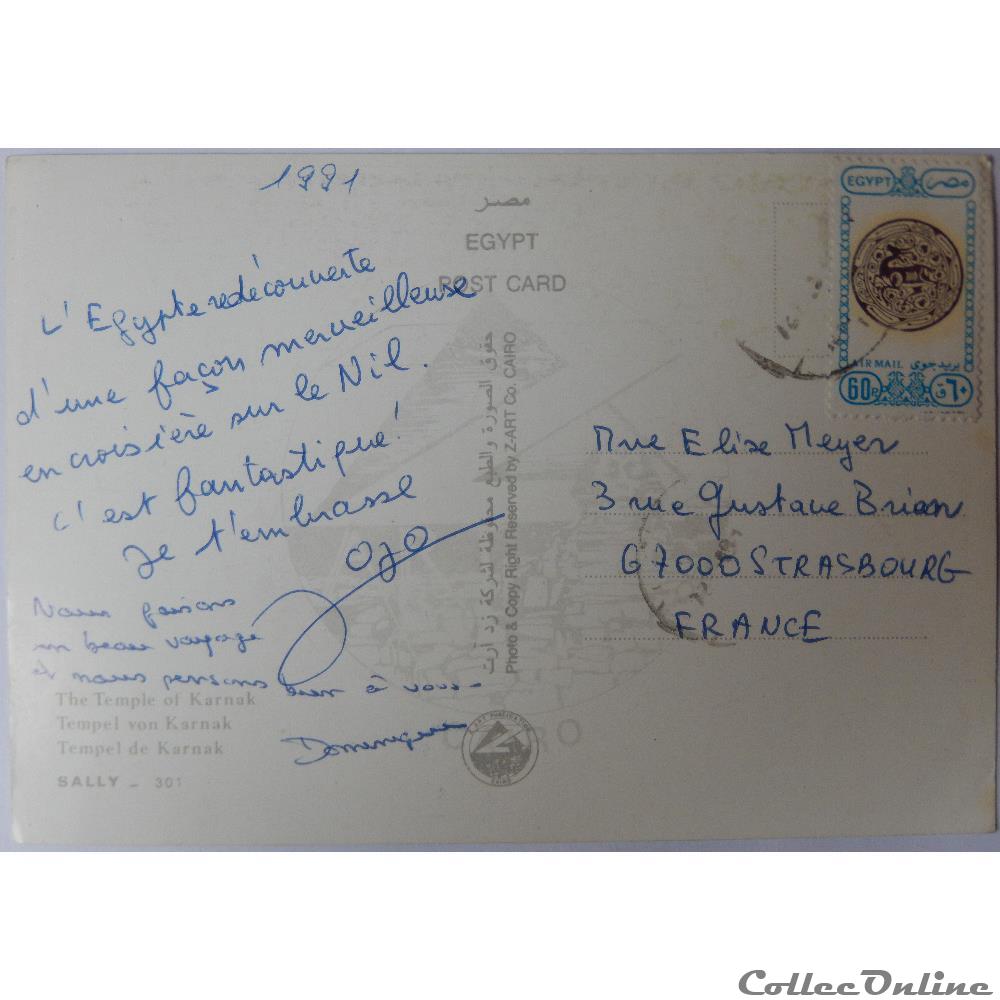 1991
مصر
EGYPT
POST CARD
L'Egypte redécouverte
d'une façon merveilleuse
en croisière sur le Nil.
c'est fantastique!
Je t'embrasse
Nous faisons
un beau voyage
et nous pensons bien à vous-
Dominique
The Temple of Karnak
Tempel von Karnak
Tempel de Karnak
SALLY - 301
حقوق الصورة والطبع محفوظة لشركة زد آرت
Photo & Copy Right Reserved by Z-ART Co. CAIRO
EGYPT مصر
AIR MAIL بريد جوى
60P ٦٠ق
Mme Elise Meyer
3 rue Gustave Brion
67000 STRASBOURG
FRANCE
CollecOnline